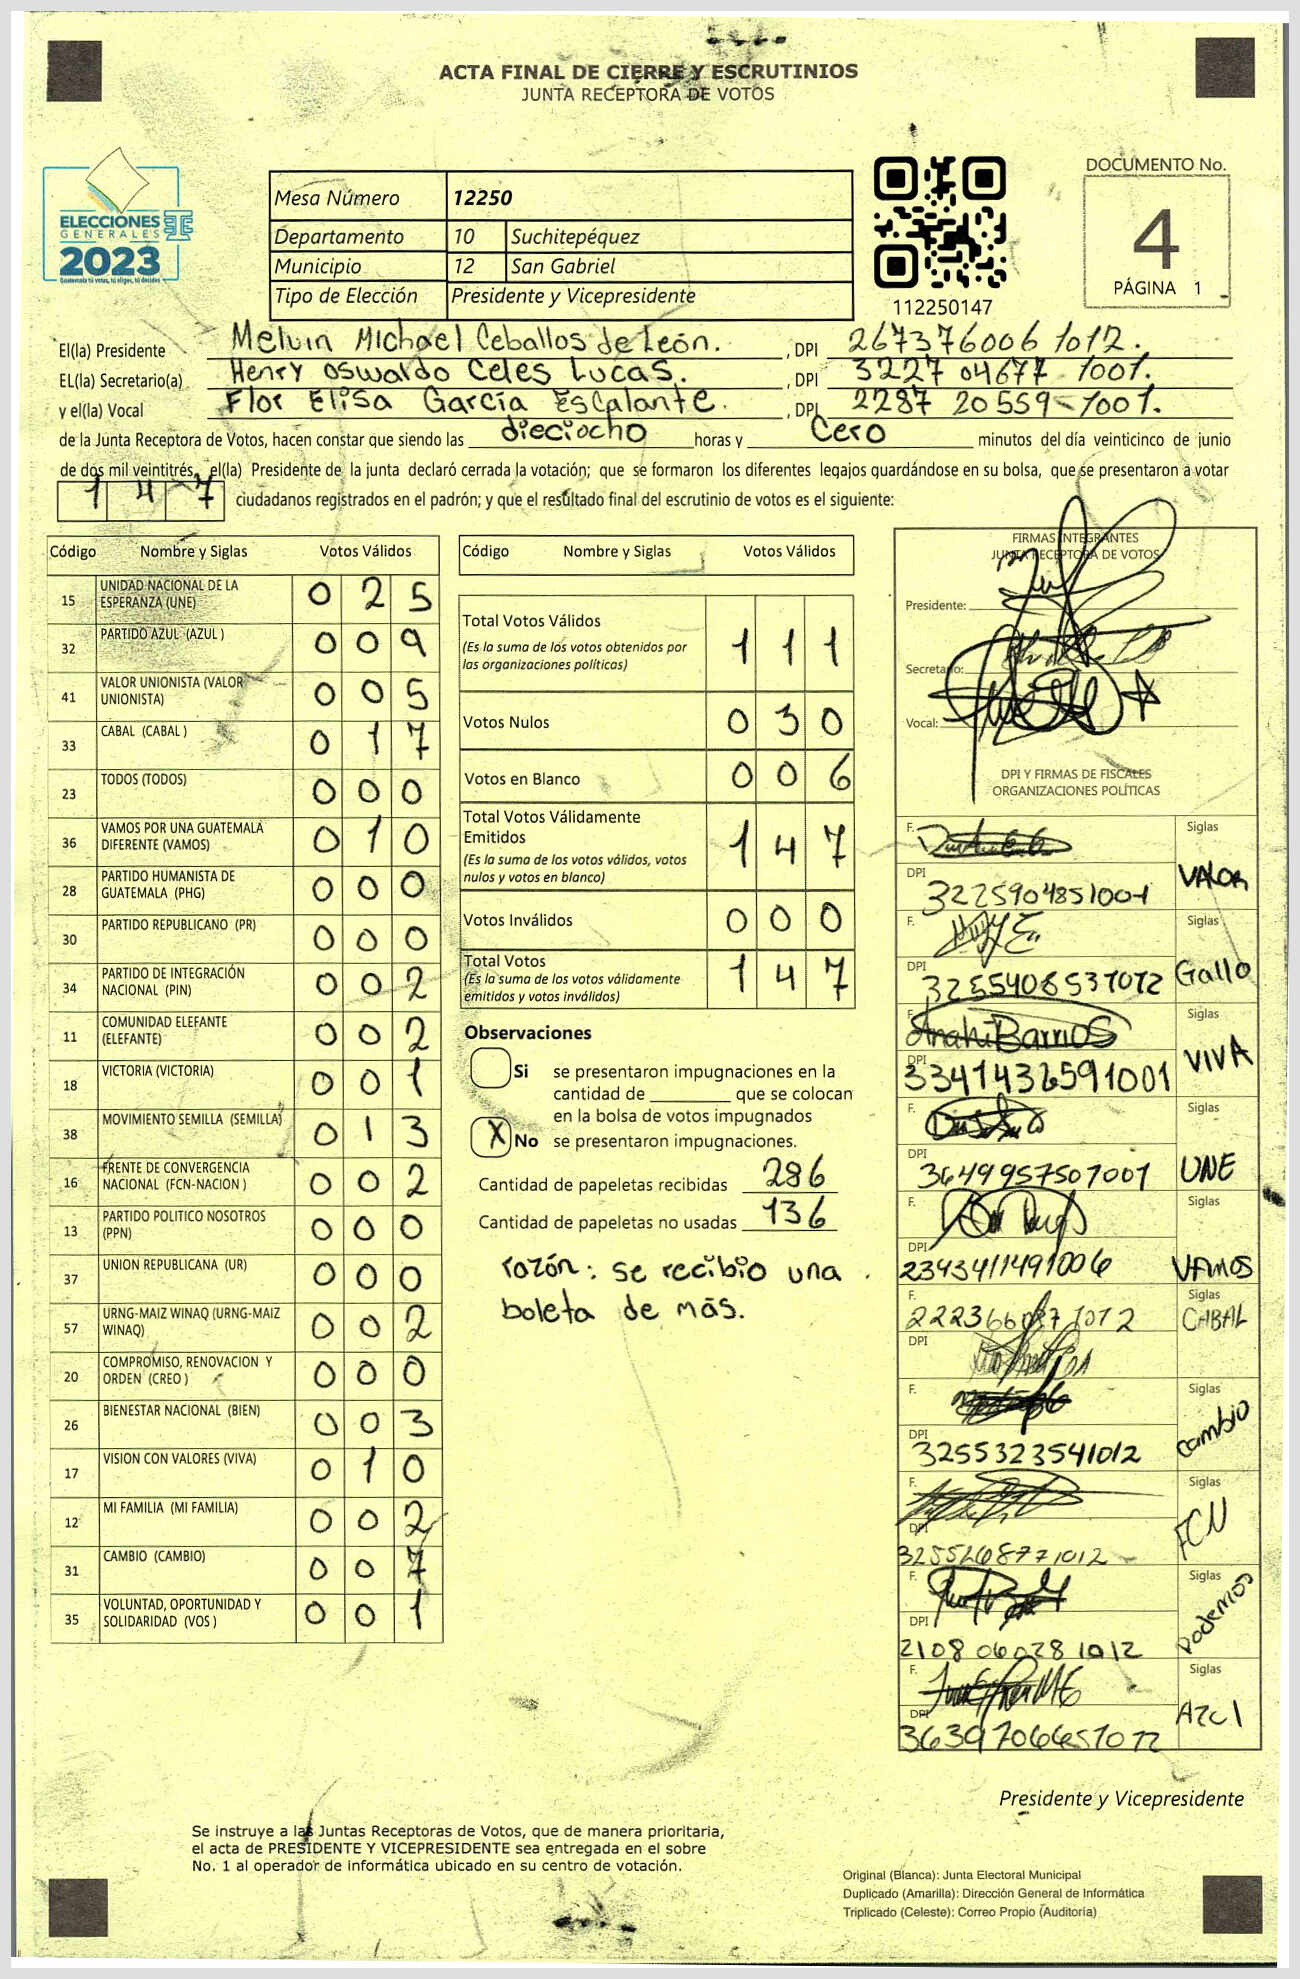 ACTA FINAL DE CIERRE Y ESCRUTINIOS
JUNTA RECEPTORA DE VOTOS
ELECCIONES
GENERALES
2023
Guatemala tú votas, tú eliges, tú decides
Mesa Número 12250
Departamento 10 Suchitepéquez
Municipio 12 San Gabriel
Tipo de Elección Presidente y Vicepresidente
112250147
DOCUMENTO No.
4
PÁGINA 1
El(la) Presidente Melvin Michael Ceballos de León. , DPI 2673760061012.
EL(la) Secretario(a) Henry Oswaldo Celes Lucas. , DPI 3227 04677 1001.
y el(la) Vocal Flor Elisa García Escalante. , DPI 2287 20559-1001.
de la Junta Receptora de Votos, hacen constar que siendo las dieciocho horas y Cero minutos del día veinticinco de junio
de dos mil veintitrés, el(la) Presidente de la junta declaró cerrada la votación; que se formaron los diferentes legajos guardándose en su bolsa, que se presentaron a votar
147 ciudadanos registrados en el padrón; y que el resultado final del escrutinio de votos es el siguiente:
Código Nombre y Siglas Votos Válidos
15 UNIDAD NACIONAL DE LA ESPERANZA (UNE) 0 2 5
32 PARTIDO AZUL (AZUL ) 0 0 9
41 VALOR UNIONISTA (VALOR UNIONISTA) 0 0 5
33 CABAL (CABAL ) 0 1 7
23 TODOS (TODOS) 0 0 0
36 VAMOS POR UNA GUATEMALA DIFERENTE (VAMOS) 0 1 0
28 PARTIDO HUMANISTA DE GUATEMALA (PHG) 0 0 0
30 PARTIDO REPUBLICANO (PR) 0 0 0
34 PARTIDO DE INTEGRACIÓN NACIONAL (PIN) 0 0 2
11 COMUNIDAD ELEFANTE (ELEFANTE) 0 0 2
18 VICTORIA (VICTORIA) 0 0 1
38 MOVIMIENTO SEMILLA (SEMILLA) 0 1 3
16 FRENTE DE CONVERGENCIA NACIONAL (FCN-NACION ) 0 0 2
13 PARTIDO POLITICO NOSOTROS (PPN) 0 0 0
37 UNION REPUBLICANA (UR) 0 0 0
57 URNG-MAIZ WINAQ (URNG-MAIZ WINAQ) 0 0 2
20 COMPROMISO, RENOVACION Y ORDEN (CREO ) 0 0 0
26 BIENESTAR NACIONAL (BIEN) 0 0 3
17 VISION CON VALORES (VIVA) 0 1 0
12 MI FAMILIA (MI FAMILIA) 0 0 2
31 CAMBIO (CAMBIO) 0 0 7
35 VOLUNTAD, OPORTUNIDAD Y SOLIDARIDAD (VOS ) 0 0 1
Código Nombre y Siglas Votos Válidos
Total Votos Válidos 1 1 1
(Es la suma de los votos obtenidos por
las organizaciones políticas)
Votos Nulos 0 3 0
Votos en Blanco 0 0 6
Total Votos Válidamente
Emitidos 1 4 7
(Es la suma de los votos válidos, votos
nulos y votos en blanco)
Votos Inválidos 0 0 0
Total Votos 1 4 7
(Es la suma de los votos válidamente
emitidos y votos inválidos)
Observaciones
Si se presentaron impugnaciones en la
cantidad de ________ que se colocan
en la bolsa de votos impugnados
X No se presentaron impugnaciones.
Cantidad de papeletas recibidas 286
Cantidad de papeletas no usadas 136
razón: se recibio una
boleta de más.
FIRMAS INTEGRANTES
JUNTA RECEPTORA DE VOTOS
Presidente:
Secretario:
Vocal:
DPI Y FIRMAS DE FISCALES
ORGANIZACIONES POLÍTICAS
F. Siglas
DPI 3225904851001 VALOR
F. Siglas
DPI 3255408531012 Gallo
F. Anahi Barrios Siglas
DPI 3341432591001 VIVA
F. Siglas
DPI 3649957501001 UNE
F. Siglas
DPI 2343411491006 VAMOS
F. Siglas
CABAL
DPI
F. Siglas
DPI 3255323541012 cambio
F. Siglas
DPI 3255268771012 FCN
F. Siglas
DPI 2108060281012 Podemos
F. Siglas
DPI Azul
Presidente y Vicepresidente
Se instruye a las Juntas Receptoras de Votos, que de manera prioritaria,
el acta de PRESIDENTE Y VICEPRESIDENTE sea entregada en el sobre
No. 1 al operador de informática ubicado en su centro de votación.
Original (Blanca): Junta Electoral Municipal
Duplicado (Amarilla): Dirección General de Informática
Triplicado (Celeste): Correo Propio (Auditoría)